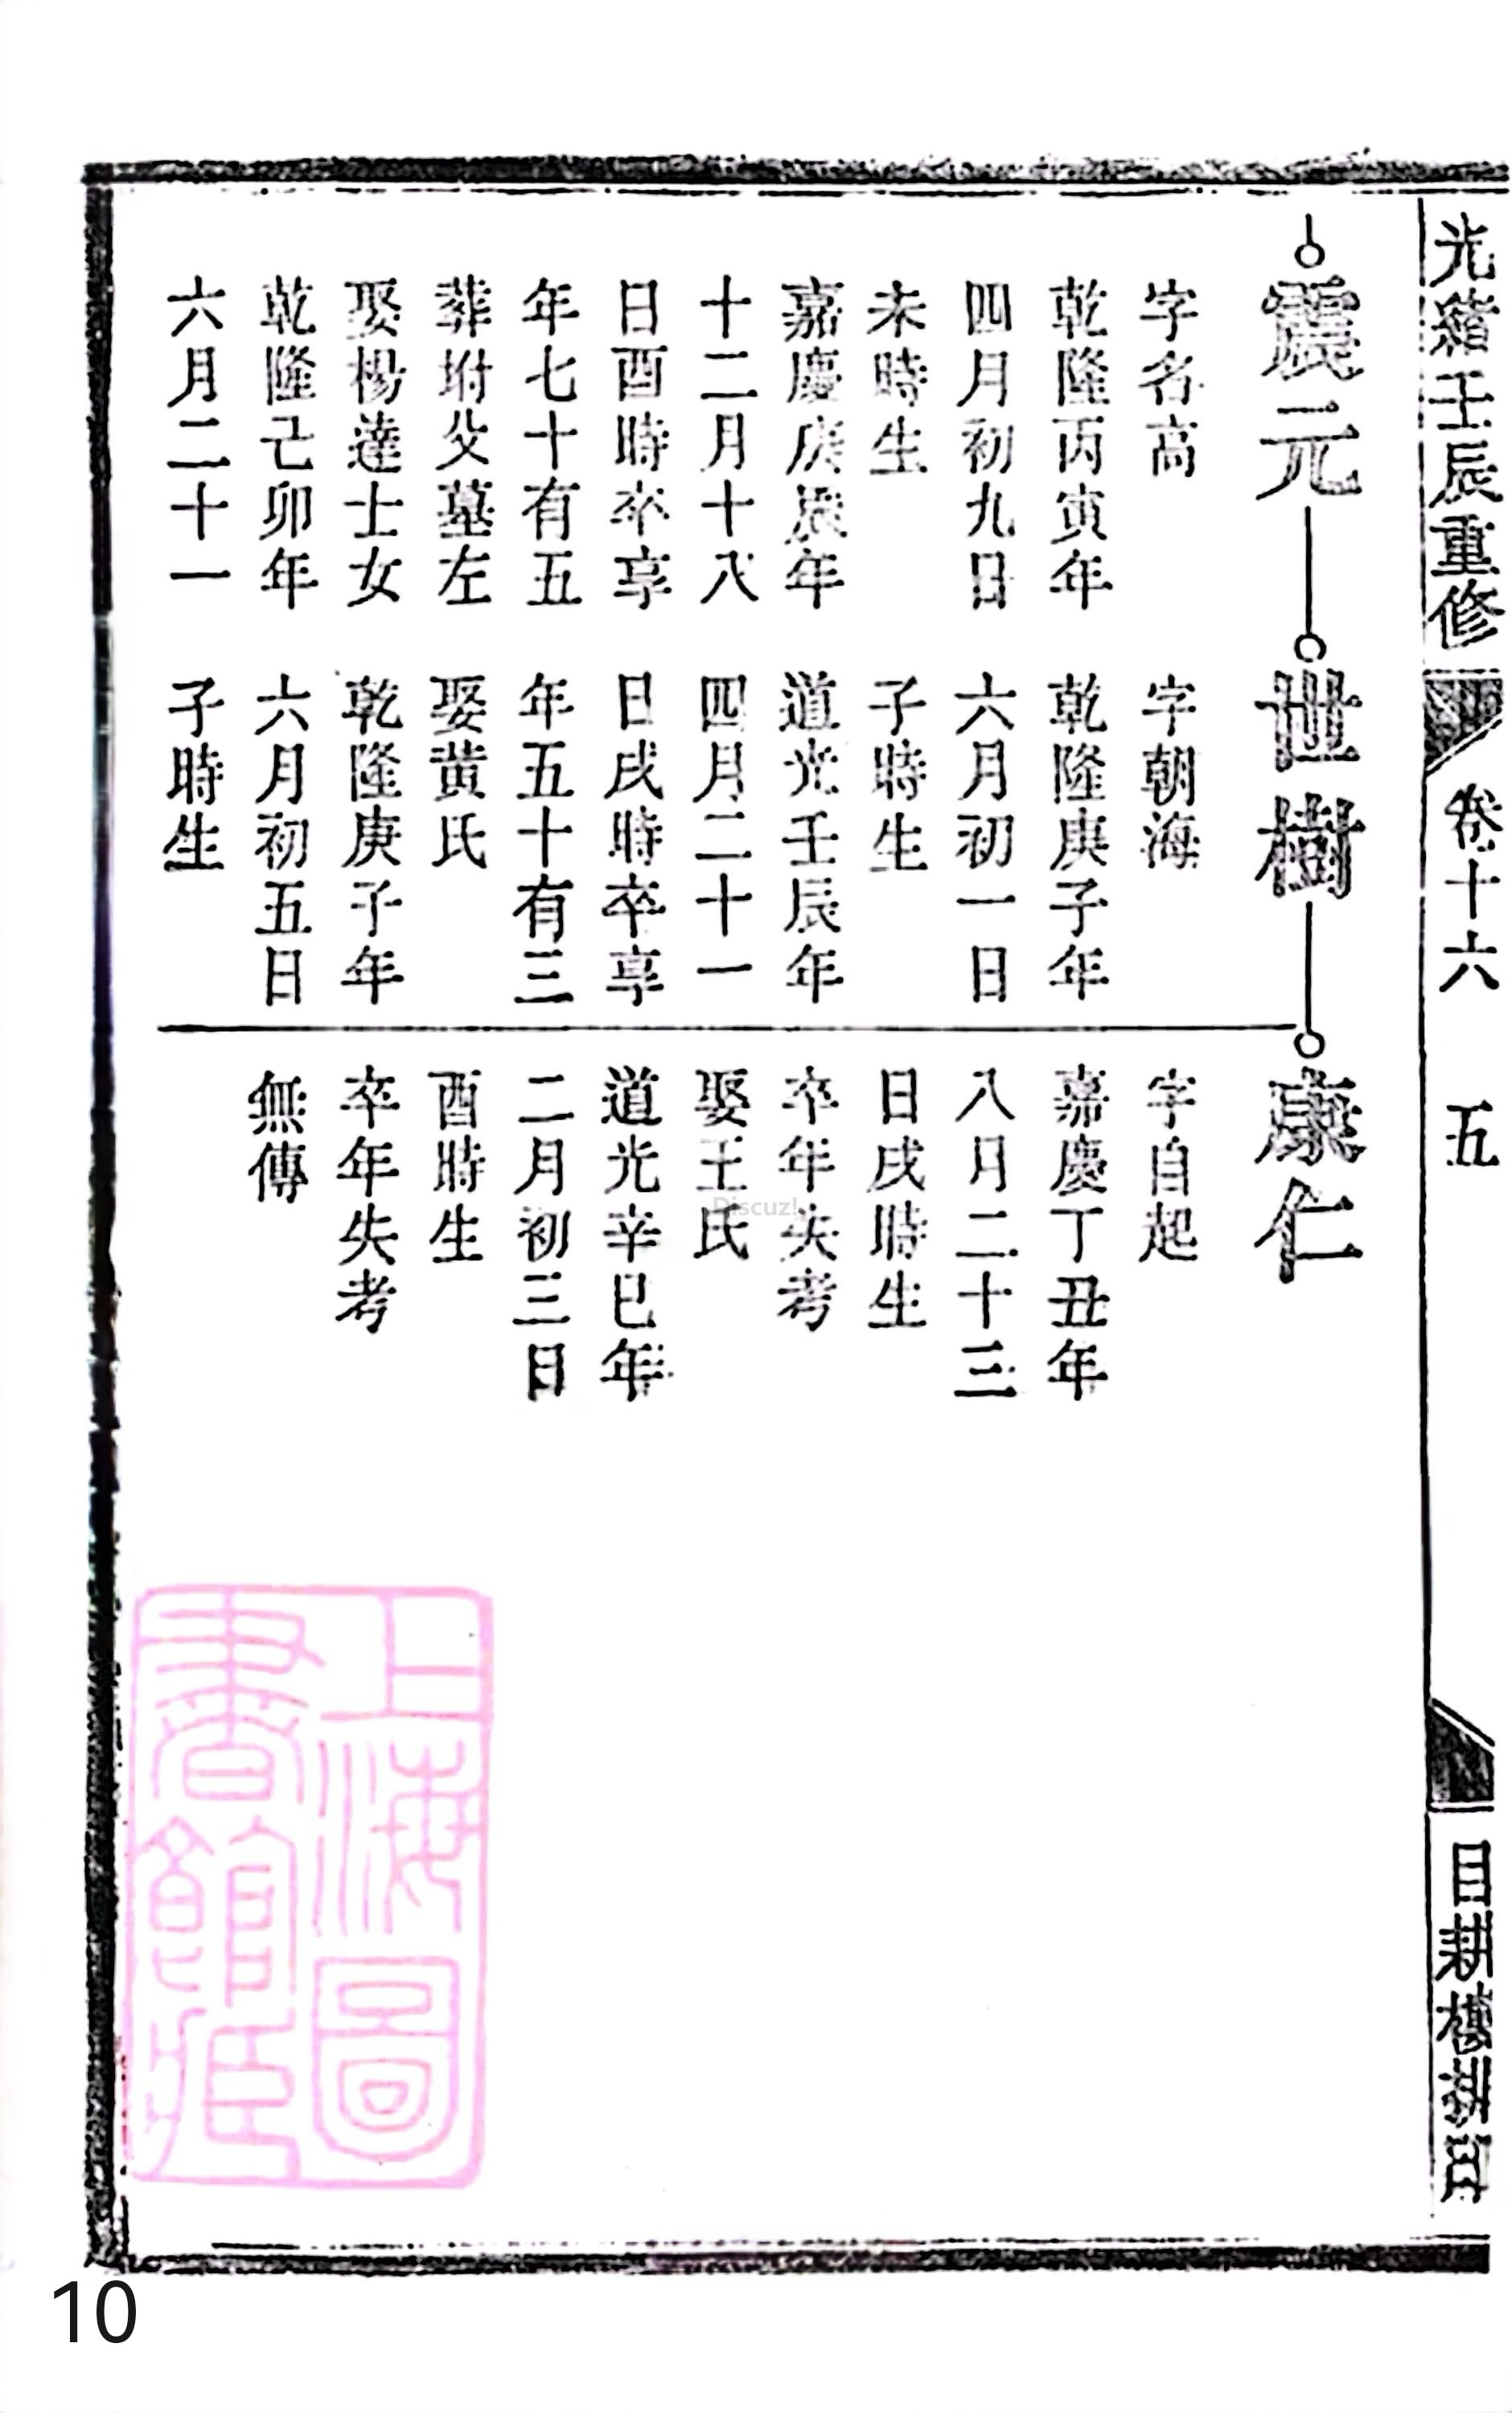 光緒壬辰重修
卷十六
五
目耕樓排印
震元
字名高
乾隆丙寅年
四月初九日
未時生
嘉慶庚辰年
十二月十八
日酉時卒享
年七十有五
葬坿父墓左
娶楊達士女
乾隆己卯年
六月二十一
世樹
字朝海
乾隆庚子年
六月初一日
子時生
道光壬辰年
四月二十一
日戌時卒享
年五十有三
娶黃氏
乾隆庚子年
六月初五日
子時生
康仁
字自起
嘉慶丁丑年
八月二十三
日戌時生
卒年失考
娶王氏
道光辛巳年
二月初三日
酉時生
卒年失考
無傳
上海圖
書館藏
Discuz!
10